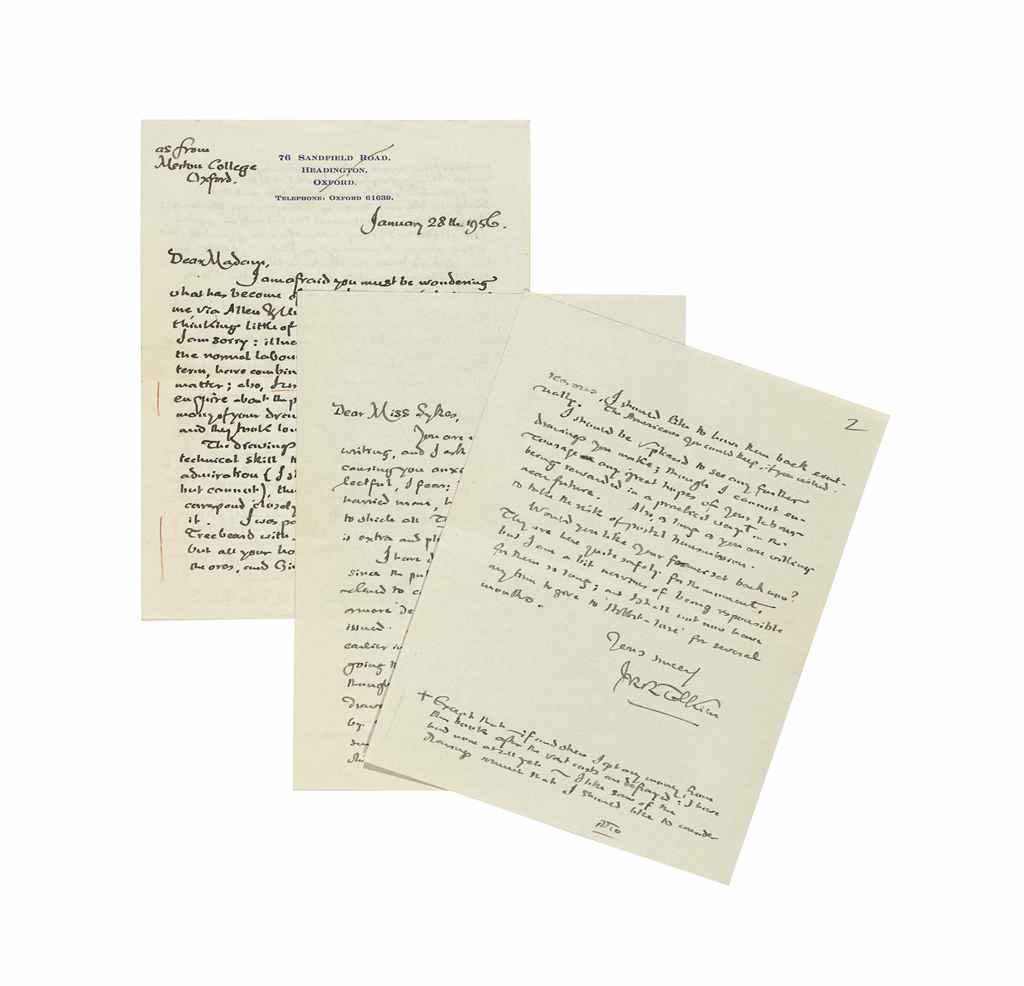 as from
Merton College
Oxford.
76 SANDFIELD ROAD,
HEADINGTON,
OXFORD.
TELEPHONE: OXFORD 61639.
January 28th 1956.
Dear Madam,
I am afraid you must be wondering
what has become
me via Allen
thinking little of
I am sorry: illne
the normal labou
term, have combin
matter; also,
enquire about the p
many of your draw
and they took lon
The drawings
technical skill
admiration (I
but cannot), the
correspond closely
it. I was
Treebeard with.
but all your ho
the orcs, and Gi
Dear Miss Sykes,
You are
writing, and I
causing you anxi
lectful, I fear;
harried man,
to shield all
is extra and
I have
since the pu
relevant to
or more 'de
issued.
earlier in
going
though
draw
by.
2
I should like to have them back event-
ually. The Americans you could keep, if you wished.
I should be pleased to see any further
drawings you make; though I cannot en-
courage any great hopes of your labours
being rewarded in a practical way in the
near future. Also, as long as you are willing
to take the risk of postal transmission.
Would you like your former set back now?
They are here quite safely for the moment,
but I am a bit nervous of being responsible
for them so long; and I shall not now have
any time to give to for several
months.
Yours sincerely
JRR Tolkien
+ Except that if and when I get any money from
the books after the vast costs are defrayed: I have
had none at all yet – I like some of the
drawings so much that I should like to consider
PTO